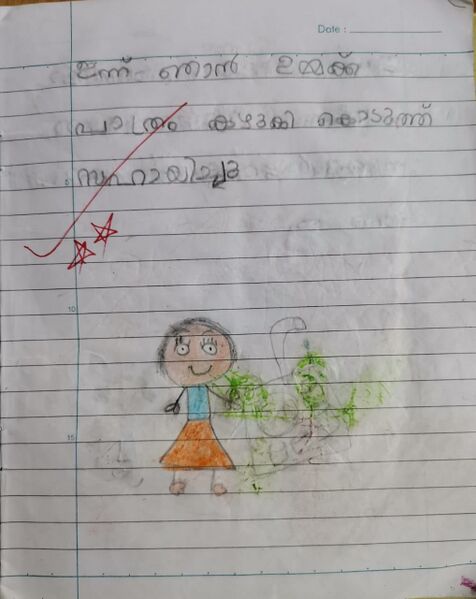 Date :
ഇന്ന് ഞാൻ ഉമ്മക്ക്
പാത്രം കഴുകി കൊടുത്ത്
സഹായിച്ചു
10
15